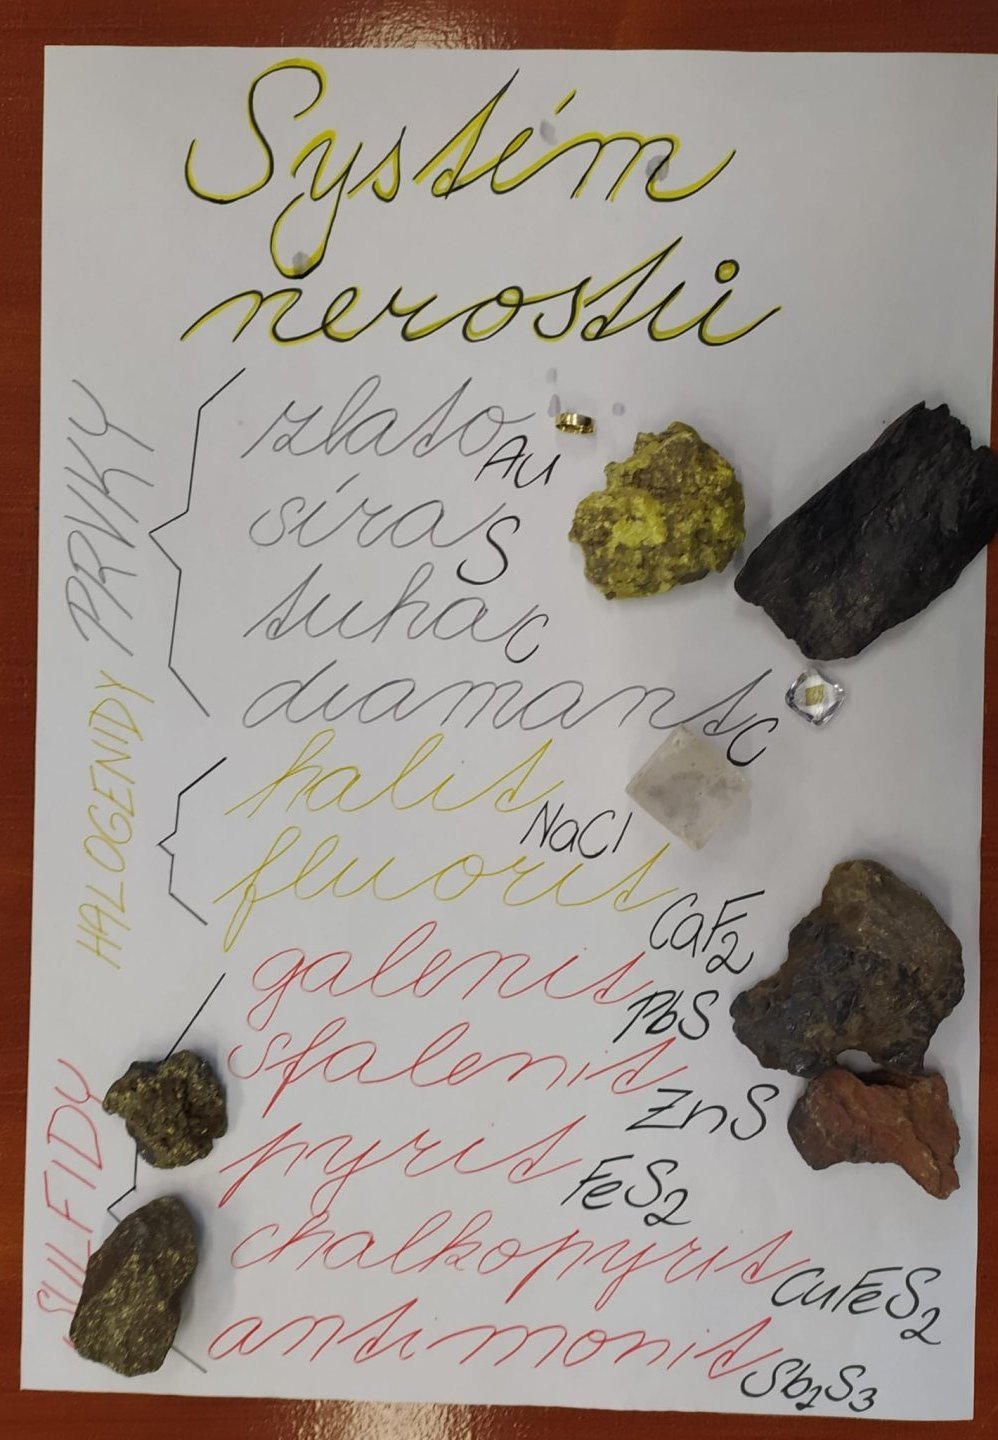 Systém
nerostů
PRVKY
zlato Au
síra S
tuha C
diamant C
HALOGENIDY
halit NaCl
fluorit CaF2
SULFIDY
galenit PbS
sfalenit ZnS
pyrit FeS2
chalkopyrit CuFeS2
antimonit Sb2S3